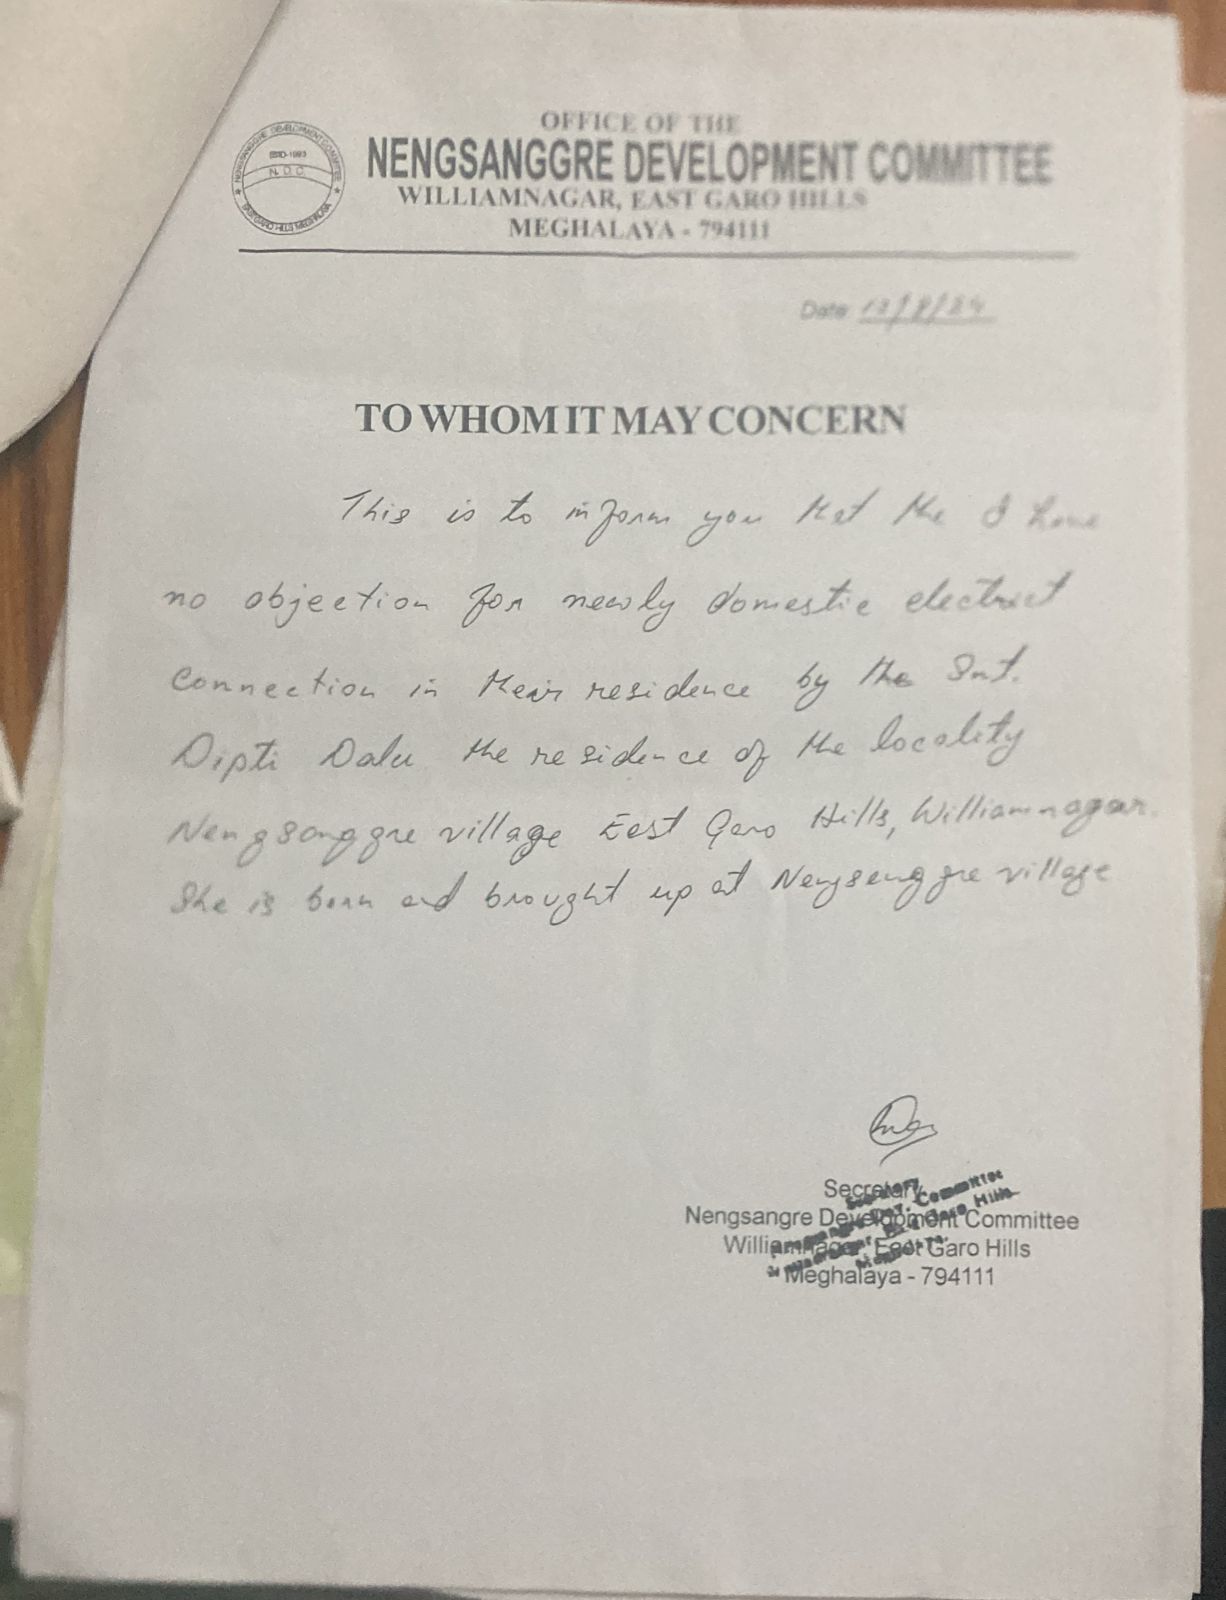 OFFICE OF THE
NENGSANGGRE DEVELOPMENT COMMITTEE
WILLIAMNAGAR, EAST GARO HILLS
MEGHALAYA - 794111
NENGSANGGRE DEVELOPMENT COMMITTEE
ESTD-1993
N.D.C.
EAST GARO HILLS MEGHALAYA
Date
TO WHOM IT MAY CONCERN
This is to inform you that the I have
no objection for newly domestic electrict
connection in their residence by the Smt.
Dipti Dalu the residence of the locality
Nengsanggre village East Garo Hills, Williamnagar.
She is born and brought up at Nengsanggre village
Secretary
Nengsangre Development Committee
Williamnagar, East Garo Hills
Meghalaya - 794111
Secretary
Dev. Committee
Garo Hills